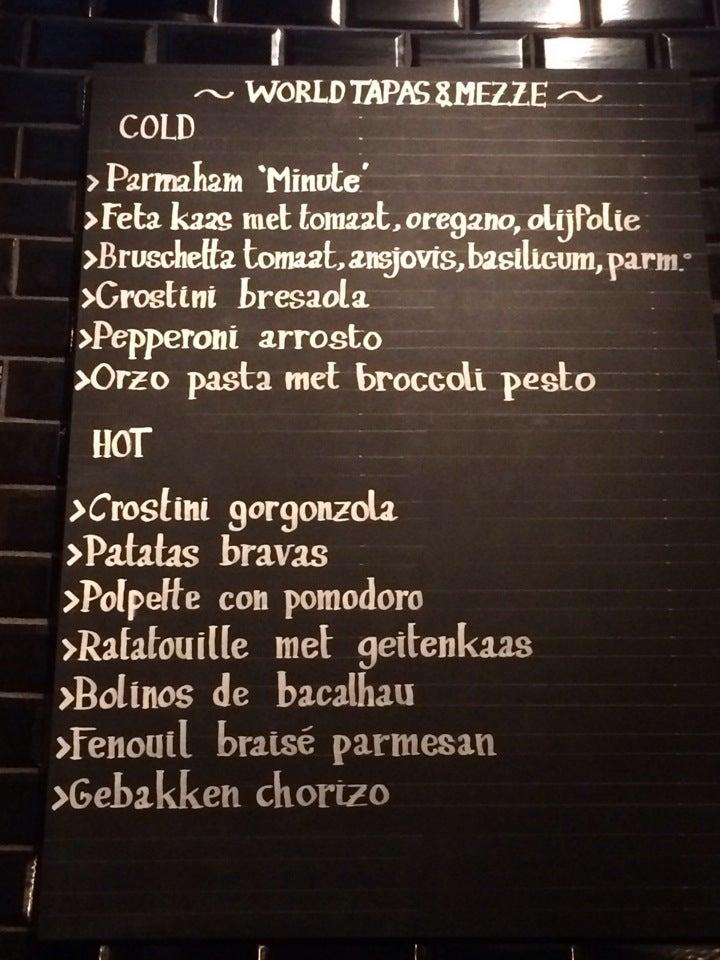 ~ WORLD TAPAS & MEZZE ~
COLD
> Parmaham 'Minute'
> Feta kaas met tomaat, oregano, olijfolie
> Bruschetta tomaat, ansjovis, basilicum, parm.°
> Crostini bresaola
> Pepperoni arrosto
> Orzo pasta met broccoli pesto
HOT
> Crostini gorgonzola
> Patatas bravas
> Polpette con pomodoro
> Ratatouille met geitenkaas
> Bolinos de bacalhau
> Fenouil braisé parmesan
> Gebakken chorizo